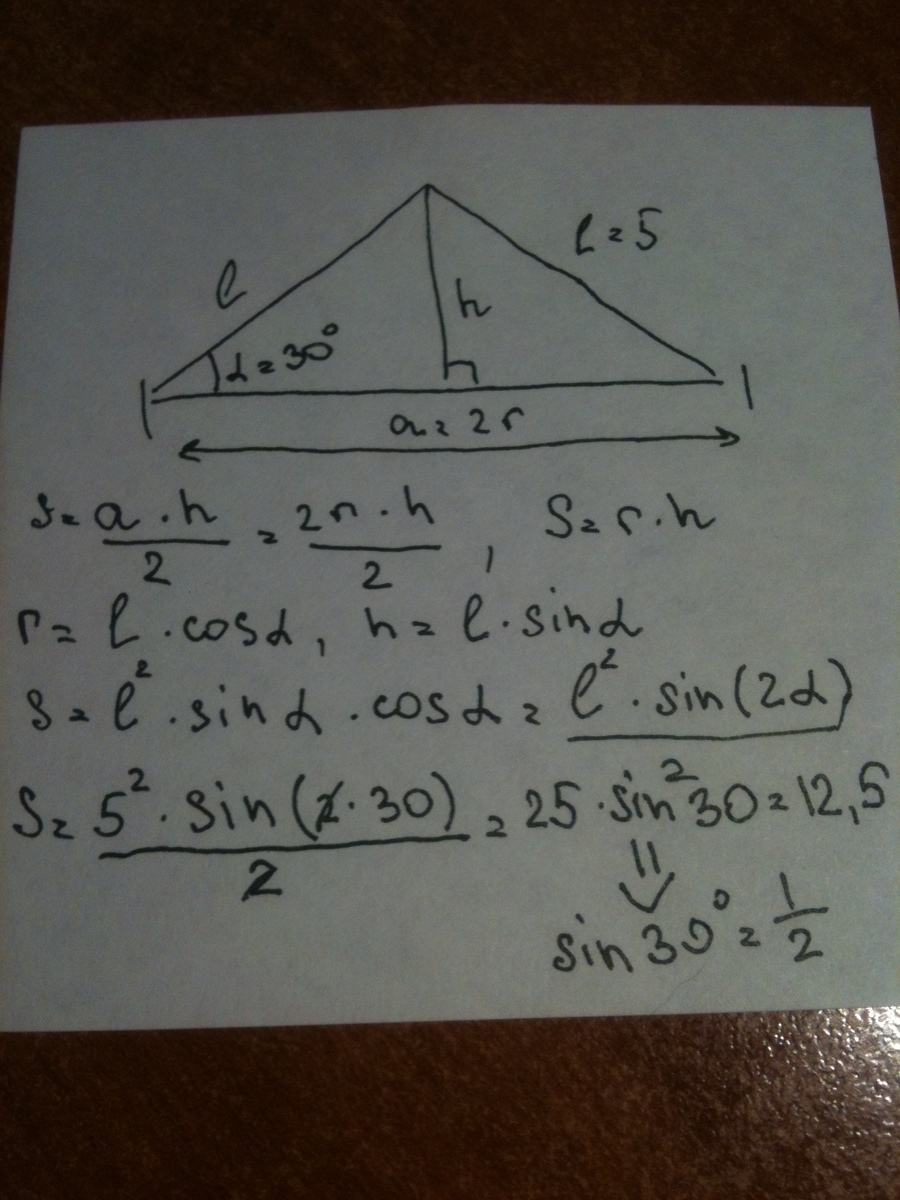 l
l = 5
h
α = 30°
a = 2r
S = a · h / 2 = 2r · h / 2 , S = r · h
r = l · cosα, h = l · sinα
S = l² · sinα · cosα = l² · sin(2α)
S = 5² · sin(2 · 30) / 2 = 25 · sin²30 = 12,5
⇓
sin30° = 1/2